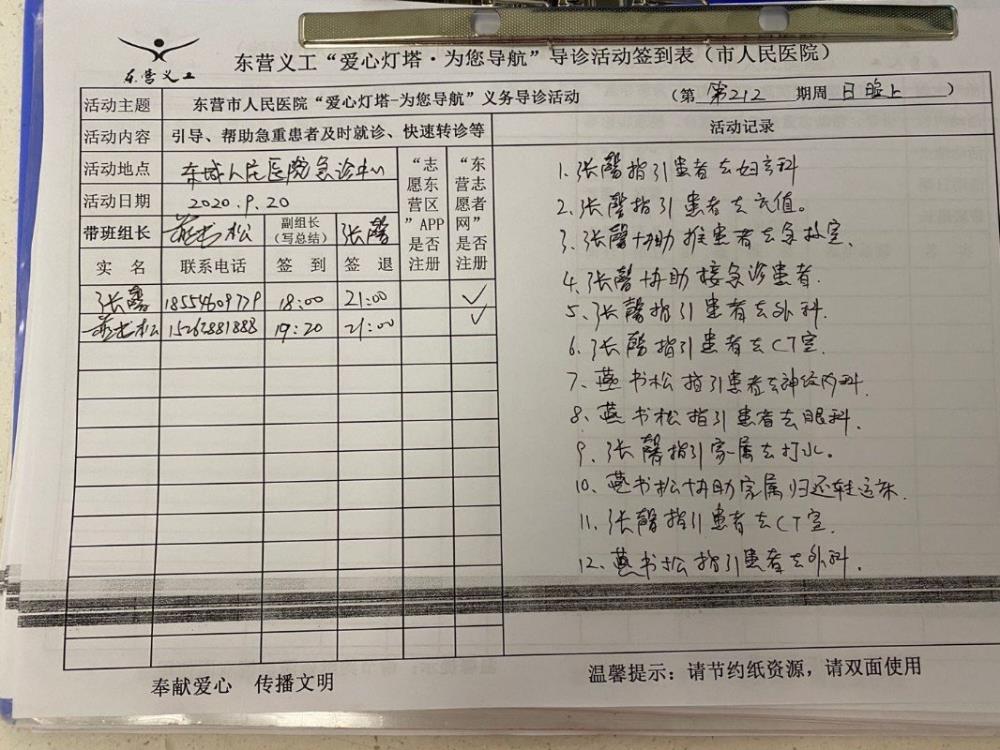 东营义工
东营义工“爱心灯塔·为您导航”导诊活动签到表（市人民医院）
活动主题 东营市人民医院“爱心灯塔-为您导航”义务导诊活动 （第 第212 期周 日晚上 ）
活动内容 引导、帮助急重患者及时就诊、快速转诊等
活动地点 东城人民医院急诊中心
活动日期 2020.9.20
带班组长 燕书松 副组长（写总结） 张馨
“志愿东营区”APP是否注册
“东营志愿者网”是否注册
实名 联系电话 签到 签退
张馨 18554609779 18:00 21:00 ✓
燕书松 15262881888 19:20 21:00 ✓
活动记录
1.张馨指引患者去妇产科
2.张馨指引患者去充值。
3.张馨协助推患者去急救室.
4.张馨协助接急诊患者.
5、张馨指引患者去外科.
6.张馨指引患者去CT室.
7、燕书松指引患者去神经内科.
8、燕书松指引患者去眼科.
9、张馨指引家属去打水。
10、燕书松协助家属归还转运床.
11、张馨指引患者去CT室.
12、燕书松指引患者去外科.
奉献爱心 传播文明
温馨提示：请节约纸资源，请双面使用